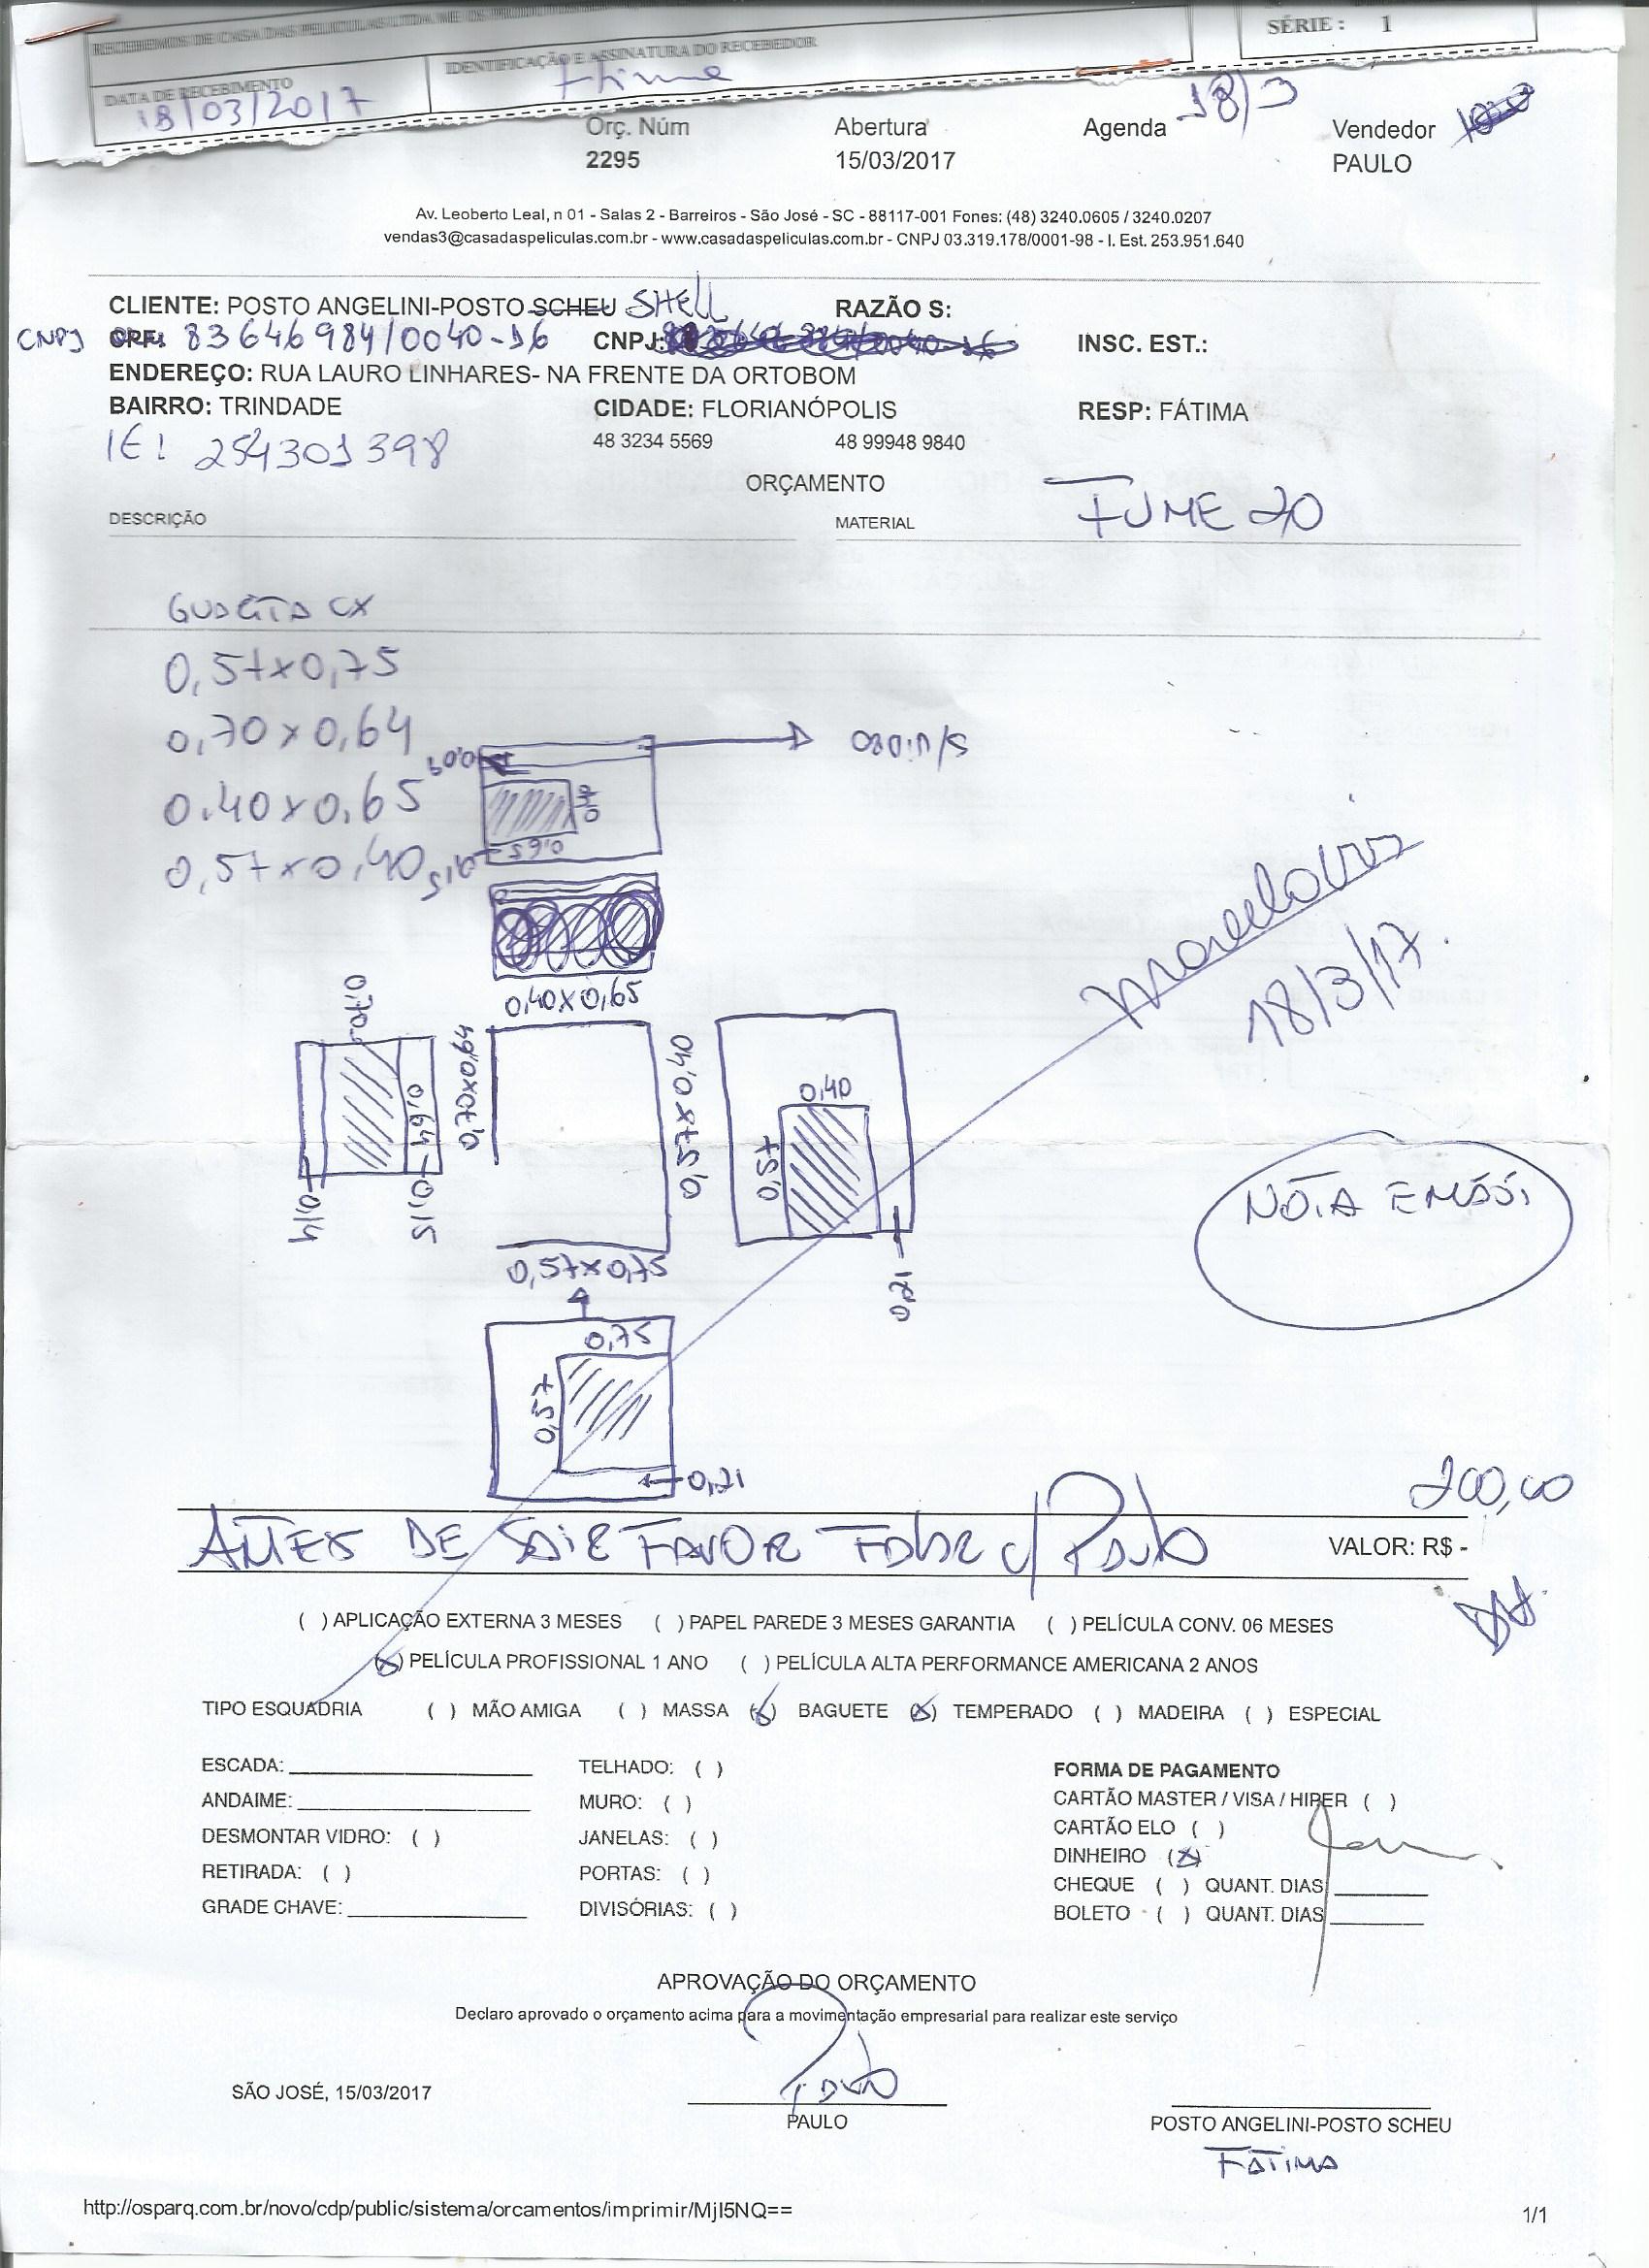 RECEBEMOS DE CASA DAS PELICULAS LTDA ME OS
SÉRIE : 1
DATA DE RECEBIMENTO
IDENTIFICAÇÃO E ASSINATURA DO RECEBEDOR
18/03/2017
Orç. Núm Abertura Agenda 18/3 Vendedor
2295 15/03/2017 PAULO
Av. Leoberto Leal, n 01 - Salas 2 - Barreiros - São José - SC - 88117-001 Fones: (48) 3240.0605 / 3240.0207
vendas3@casadaspeliculas.com.br - www.casadaspeliculas.com.br - CNPJ 03.319.178/0001-98 - I. Est. 253.951.640
CLIENTE: POSTO ANGELINI-POSTO SCHEU SHELL RAZÃO S:
CNPJ CPF: 83646984/0040-16 CNPJ: INSC. EST.:
ENDEREÇO: RUA LAURO LINHARES- NA FRENTE DA ORTOBOM
BAIRRO: TRINDADE CIDADE: FLORIANÓPOLIS RESP: FÁTIMA
IE: 254301398 48 3234 5569 48 99948 9840
ORÇAMENTO
DESCRIÇÃO MATERIAL FUME 20
GUARITA CX
0,57x0,75
0,70x0,64
0.40x0,65
0,57x0,40
0,09
0,40
0,65
0,15
0,40x0,65
0,70
0,64
0,14
0,15
0,70x0,64
0,57x0,40
0,40
0,57
0,21
0,57x0,75
0,75
0,57
0,21
18/3/17.
NOTA EMISSI
200,00
ANTES DE SAIR FAVOR FALAR c/ PAULO VALOR: R$ -
( ) APLICAÇÃO EXTERNA 3 MESES ( ) PAPEL PAREDE 3 MESES GARANTIA ( ) PELÍCULA CONV. 06 MESES
(X) PELÍCULA PROFISSIONAL 1 ANO ( ) PELÍCULA ALTA PERFORMANCE AMERICANA 2 ANOS
TIPO ESQUADRIA ( ) MÃO AMIGA ( ) MASSA (X) BAGUETE (X) TEMPERADO ( ) MADEIRA ( ) ESPECIAL
ESCADA: TELHADO: ( ) FORMA DE PAGAMENTO
ANDAIME: MURO: ( ) CARTÃO MASTER / VISA / HIPER ( )
DESMONTAR VIDRO: ( ) JANELAS: ( ) CARTÃO ELO ( )
RETIRADA: ( ) PORTAS: ( ) DINHEIRO (X)
GRADE CHAVE: DIVISÓRIAS: ( ) CHEQUE ( ) QUANT. DIAS
BOLETO ( ) QUANT. DIAS
APROVAÇÃO DO ORÇAMENTO
Declaro aprovado o orçamento acima para a movimentação empresarial para realizar este serviço
SÃO JOSÉ, 15/03/2017 Paulo
PAULO POSTO ANGELINI-POSTO SCHEU
FATIMA
http://osparq.com.br/novo/cdp/public/sistema/orcamentos/imprimir/MjI5NQ== 1/1